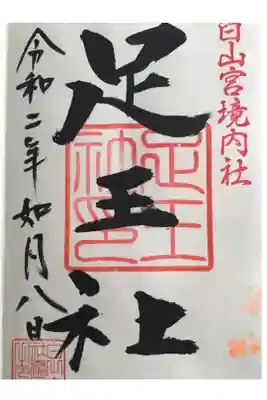 白山宮境内社
足王社
足王社印
令和二年如月八日